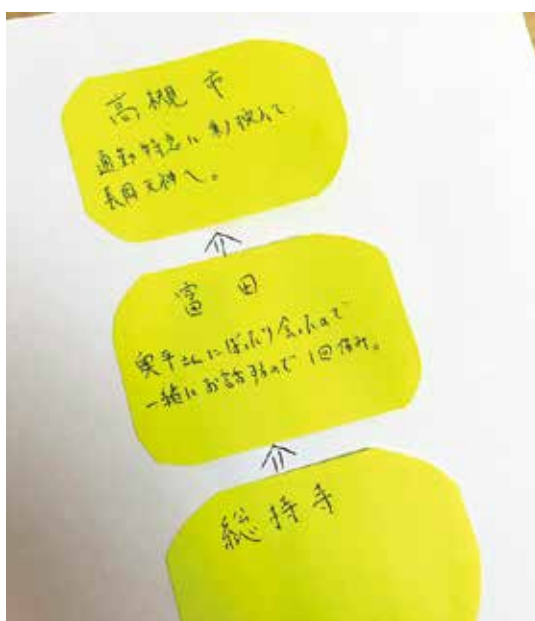 高槻市
通勤特急に乗り換えて
長岡天神へ。
富田
奥平さんにばったり会ったので
一緒にお話するので1回休み。
総持寺